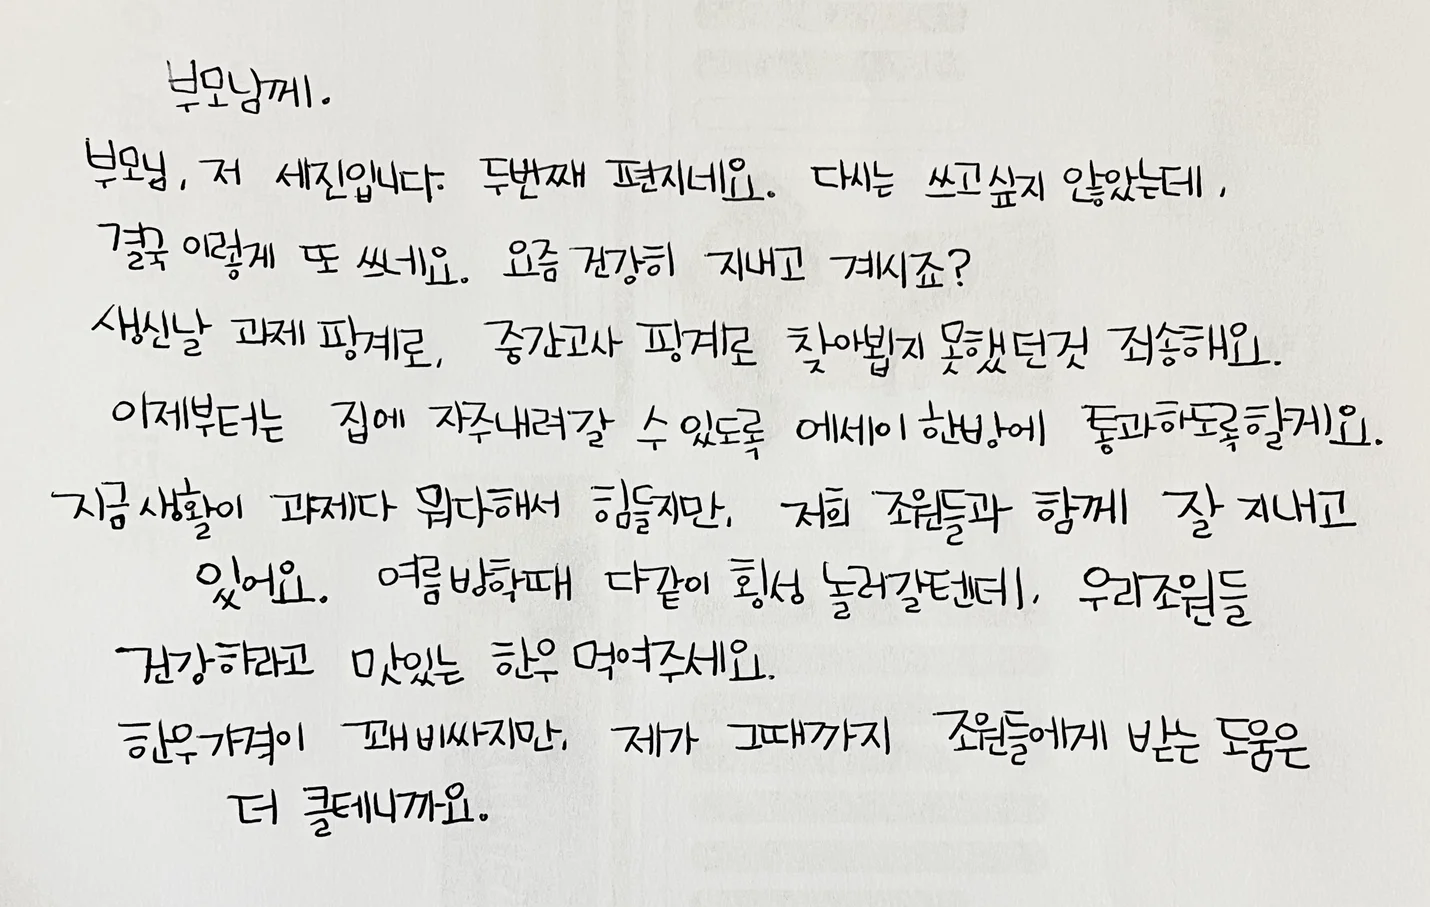 부모님께.
부모님, 저 세진입니다. 두번째 편지네요. 다시는 쓰고싶지 않았는데,
결국 이렇게 또 쓰네요. 요즘 건강히 지내고 계시죠?
생신날 과제 핑계로, 중간고사 핑계로 찾아뵙지 못했던것 죄송해요.
이제부터는 집에 자주내려갈 수 있도록 에세이 한방에 통과하도록할게요.
지금생활이 과제다 뭐다해서 힘들지만, 저희 조원들과 함께 잘 지내고
있어요. 여름방학때 다같이 횡성 놀러갈텐데, 우리조원들
건강하라고 맛있는 한우 먹여주세요.
한우가격이 꽤 비싸지만, 제가 그때까지 조원들에게 받는 도움은
더 클테니까요.